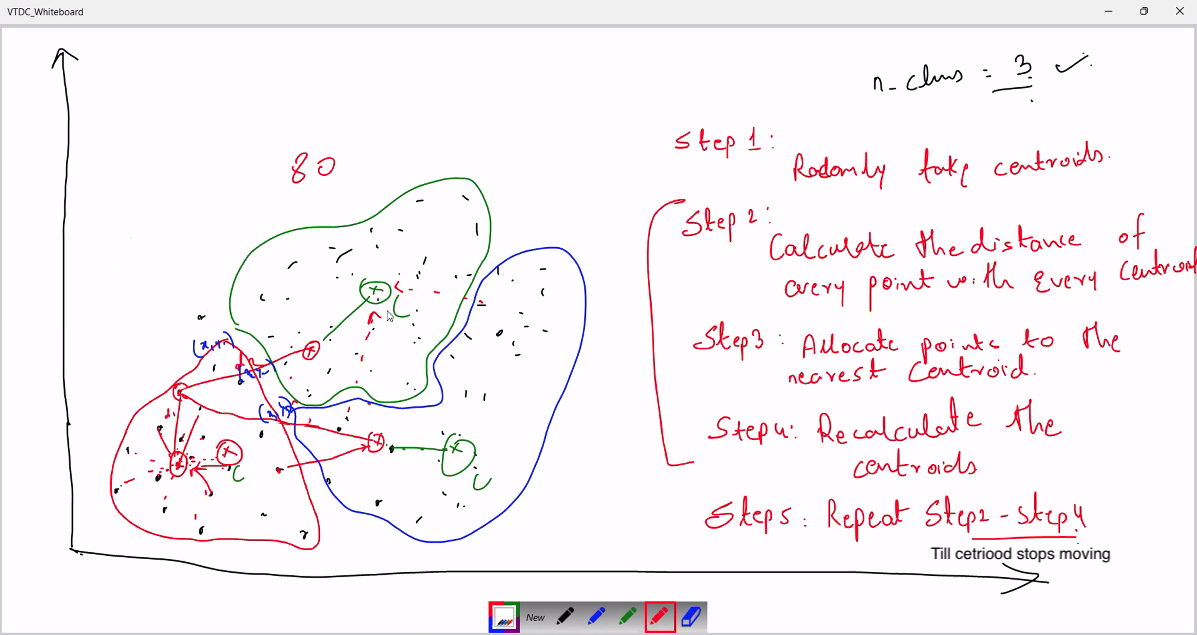 VTDC_Whiteboard
n_clus = 3 ✓
80
Step 1:
Radomly take centroids.
Step 2:
Calculate the distance of
every point with Every Centroid
Step3: Allocate points to the
nearest Centroid.
Step4: Recalculate the
centroids
Step5: Repeat Step2-Step4
Till cetriood stops moving
(x,y)
(x,y)
C
C
C
New